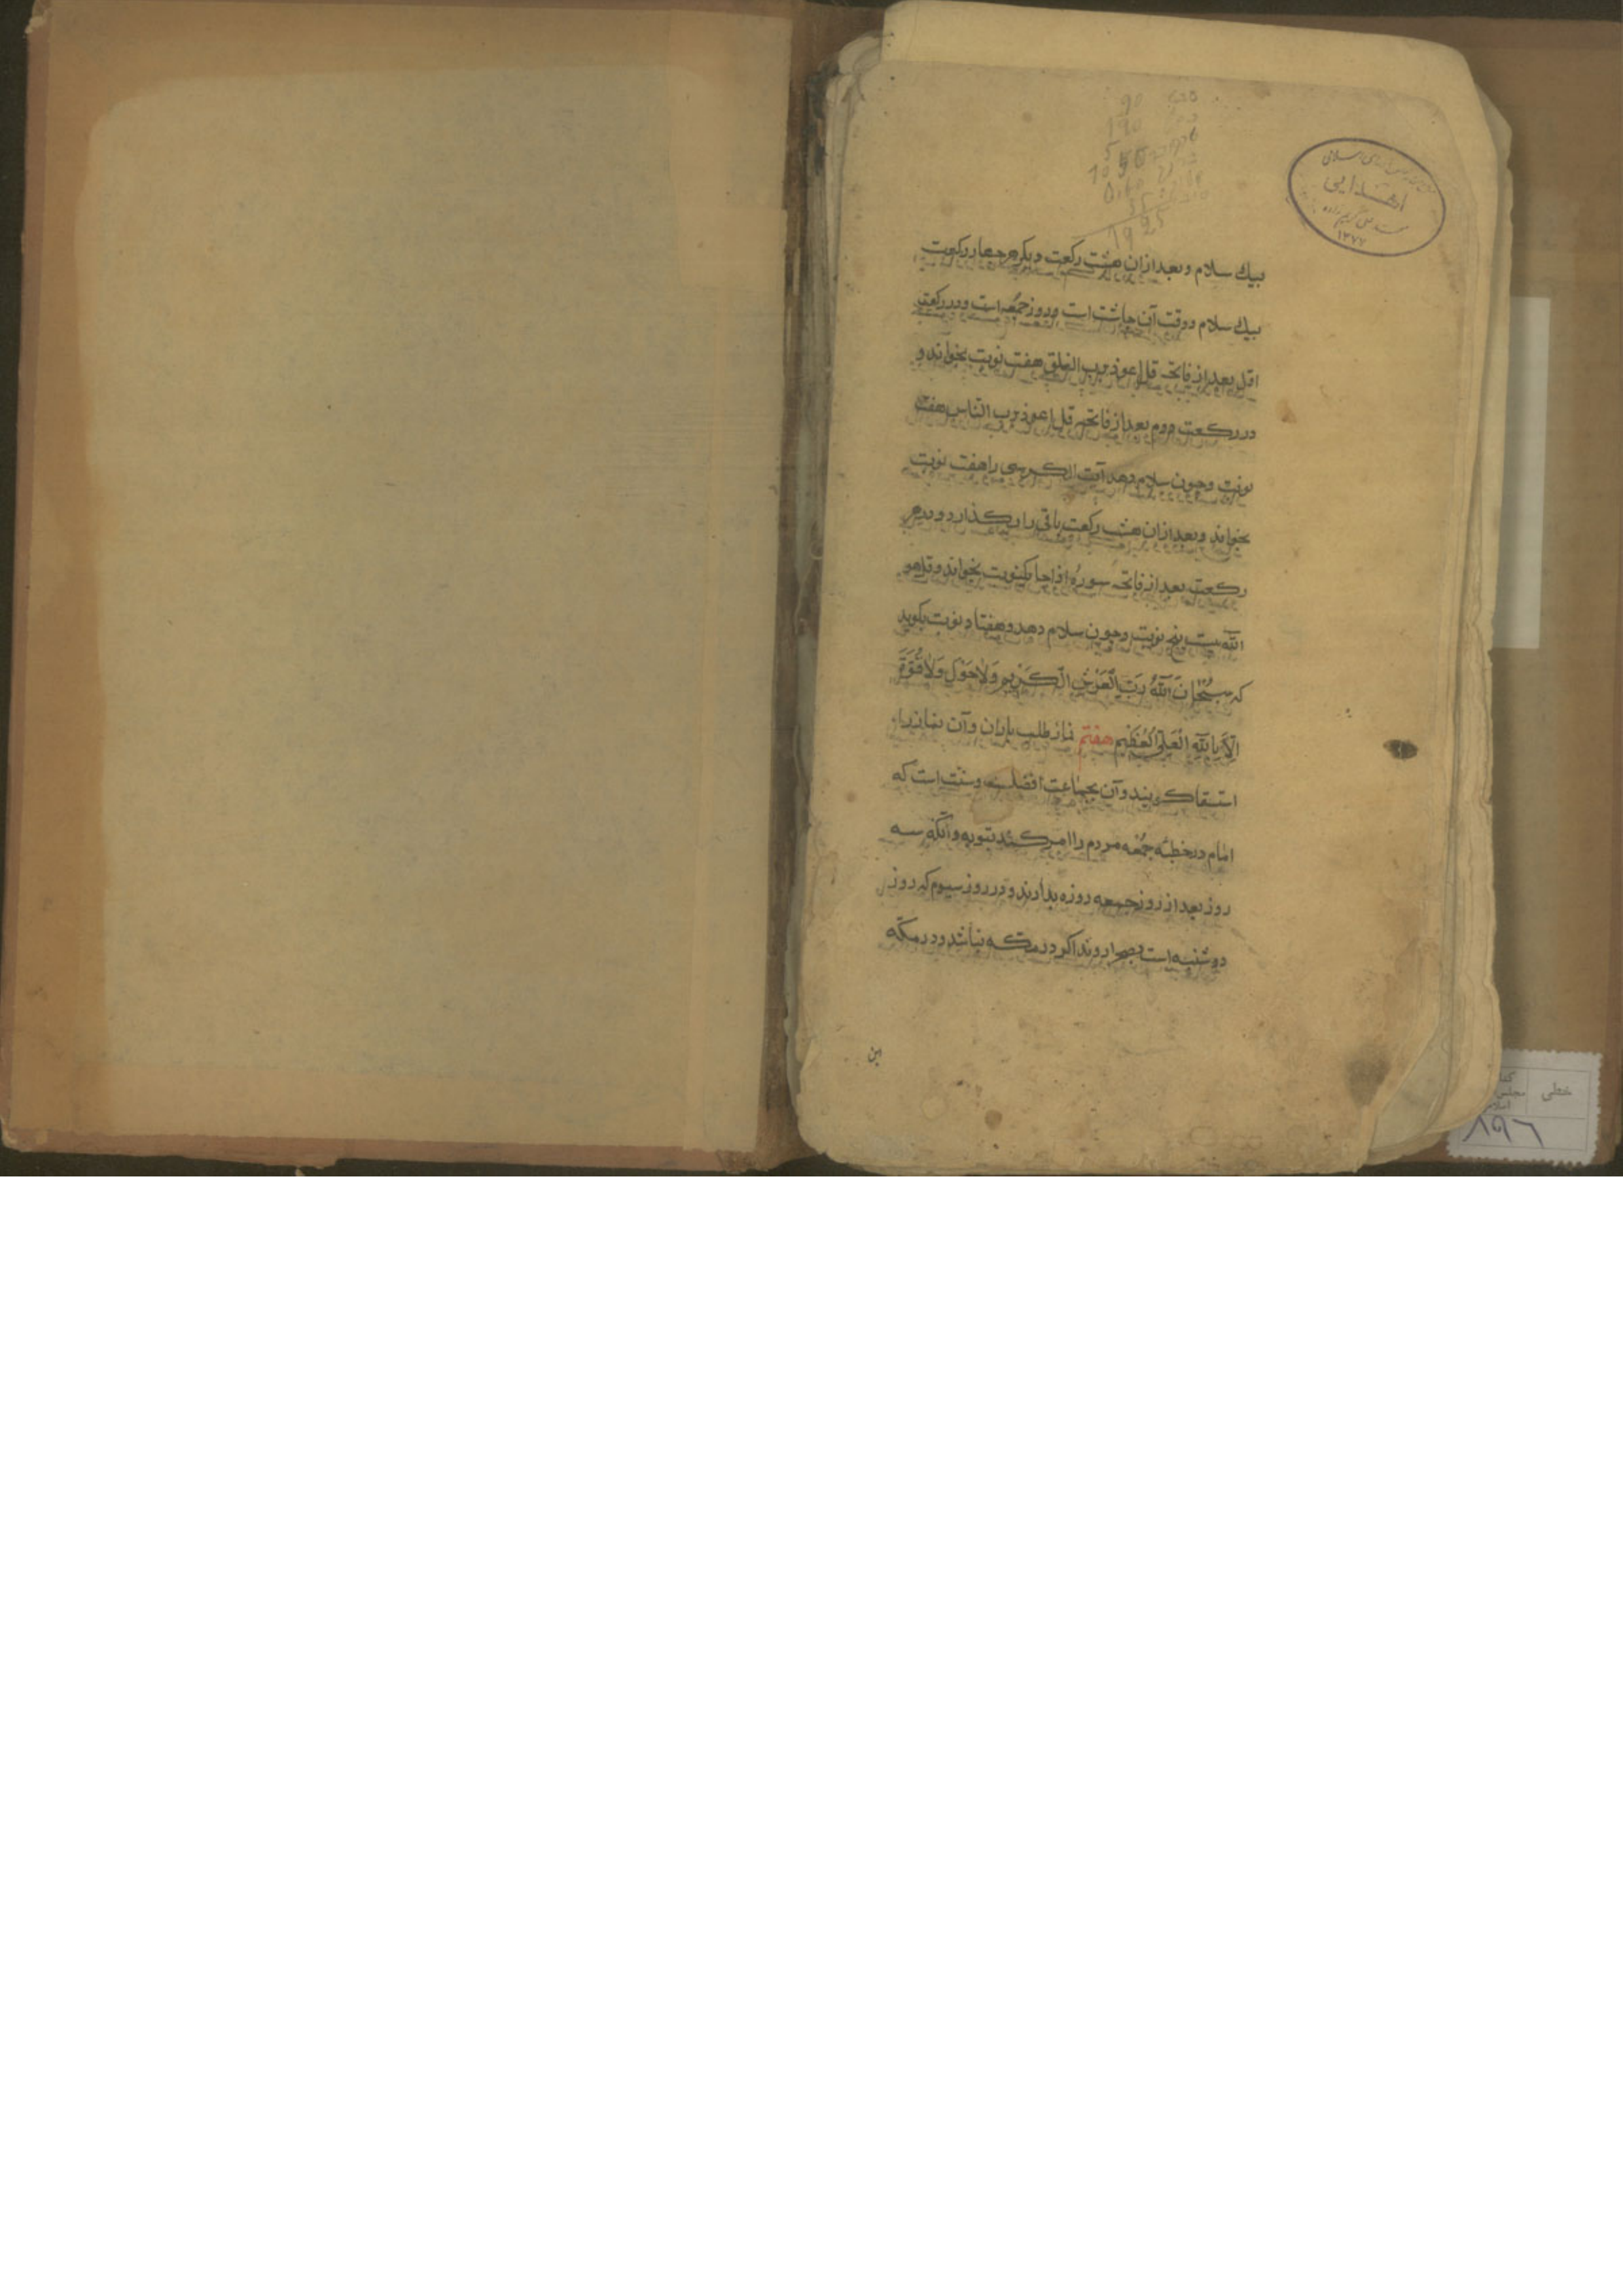 بیك سلام و بعد ازان هشت رکعت دیکر هر چهار رکعت
بیك سلام و وقت آن چاشت است و روز جمعه است و در رکعت
اول بعد از فاتحه قل اعوذ برب الفلق هفت نوبت بخواند و
در رکعت دوم بعد از فاتحه قل اعوذ برب الناس هفت
نوبت و چون سلام دهد آیت الکرسی را هفت نوبت
بخواند و بعد ازان هشت رکعت باقی را بکذارد و در هر
رکعت بعد از فاتحه سوره اذا جا یکنوبت بخواند و قل هو
الله بیست پنج نوبت و چون سلام دهد و هفتاد نوبت بکوید
که سُبْحَانَ اللهِ رَبِّ الْعَرْشِ الْکَرِیمِ وَلَا حَوْلَ وَلَا قُوَّةَ
اِلَّا بِاللهِ الْعَلِیِّ الْعَظِیمِ هفتم نماز طلب باران و آن نماز را
استسقا کویند و آن بجماعت افضلست و سنت است که
امام در خطبه جمعه مردم را امر کند بتوبه و آنکه سه
روز بعد از روز جمعه روزه بدارند و در روز سیوم که روز
دوشنبه است بصحرا روند اکر در مکه نباشد و در مکه
این
اهدایی
۱۳۷۷
خطی
۸۹۶